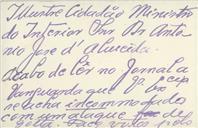 Illustre Cidadão Ministro
do Interior Snr. Dr. Anto
nio José d'Almeida.
Acabo de lêr no Jornal a
Vanguarda que V. Ex.ª
se acha incommodado
com um ataque de